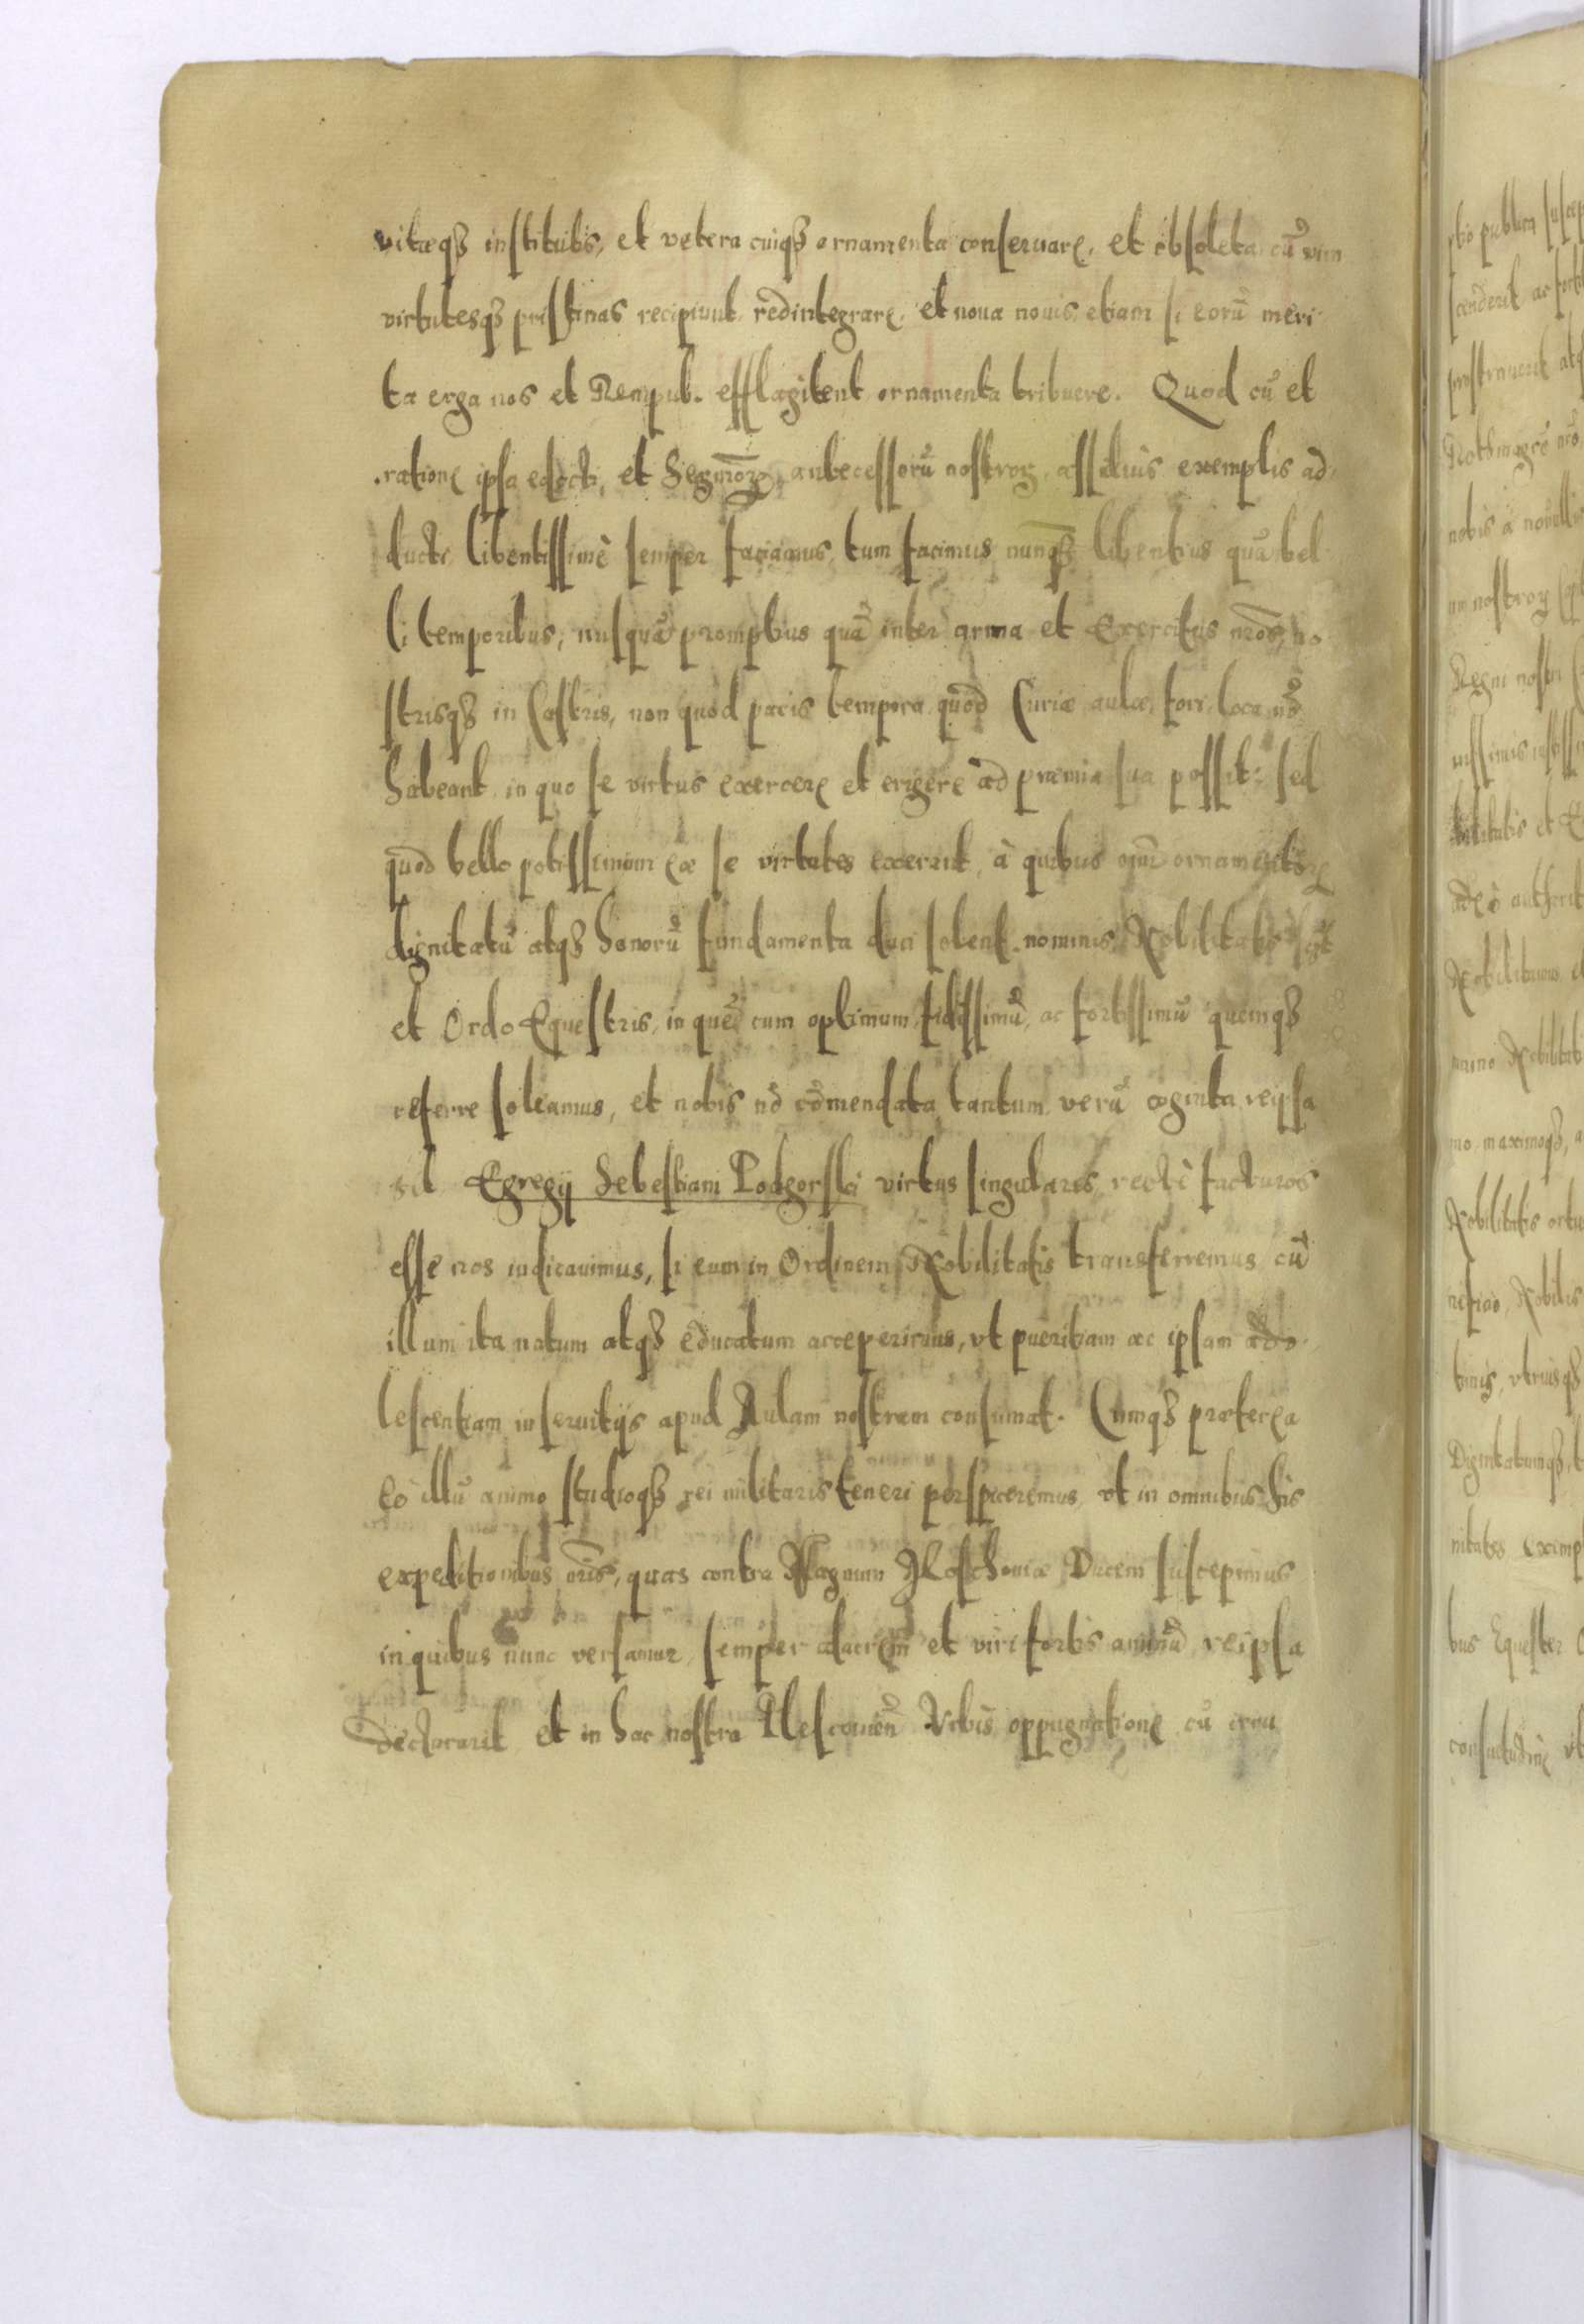 vitæqꝫ institutis, et vetera cuiqꝫ ornamenta conseruare, et obsoleta cū vim
virtutesqꝫ pristinas recipiunt, redintegrare, et noua nouis, etiam si eorū meri
ta erga nos et Rempub. efflagitent ornamenta tribuere. Quod cū et
ratione ipsa edocti, et antecessorū nostroꝝ assiduis exemplis ad
ducti libentissimè semper faciamus, tum facimus nunqꝫ libentius quā bel
li temporibus, nusquā promptius quā inter arma et Exercitus nros, no
strisqꝫ in Castris, non quòd pacis tempora, quòd Curiæ, aulæ, fori, loca nō
habeant in quo se virtus exercere et erigere ad præmia sua possit: sed
quòd bello potissimum eæ se virtutes exerant, à quibus ornamentoꝝ
dignitatū atqꝫ honorū fundamenta duci solent, nominis Nobilitatis
et Ordo Equestris, in quē cum optimum, fidissimū, ac fortissimū quemqꝫ
referre soleamus, et nobis nō cōmendata tantum, verū cognita reipsa
sit Egregij Sebestiani Podgorski virtus singularis, rectè facturos
esse nos iudicauimus, si eum in Ordinem Nobilitatis transferremus, cū
illum ita natum atqꝫ educatum acceperimus, vt pueritiam ac ipsam ado
lescentiam in seruitijs apud Aulam nostram consumat. Cumqꝫ præterea
eo illū animo studioqꝫ rei militaris teneri perspiceremus, vt in omnibus his
expeditionibus nris, quas contra Magnum Moschouiæ Ducem suscepimus
in quibus nunc versamur, semper alacrem et viri fortis animū reipsa
declararit, et in hac nostra Plescouien̄ Vrbis oppugnatione, cū